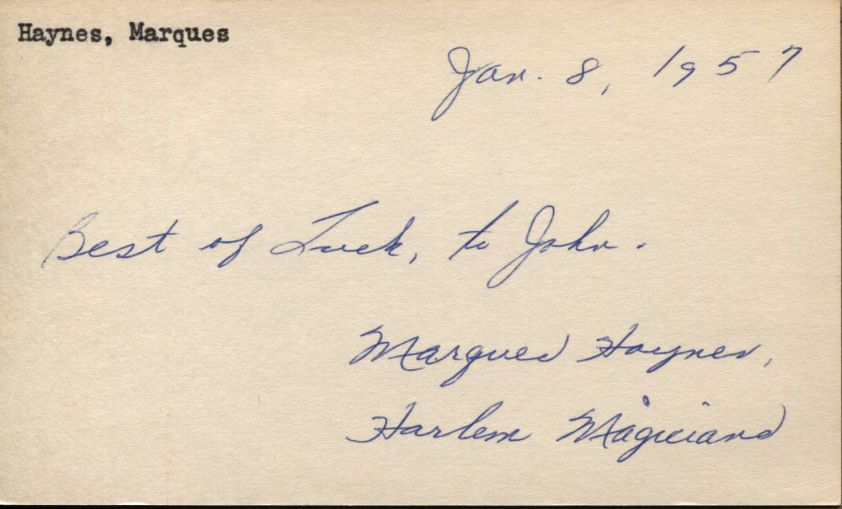 Haynes, Marques
Jan. 8, 1957
Best of Luck, to John.
Marques Haynes,
Harlem Magicians